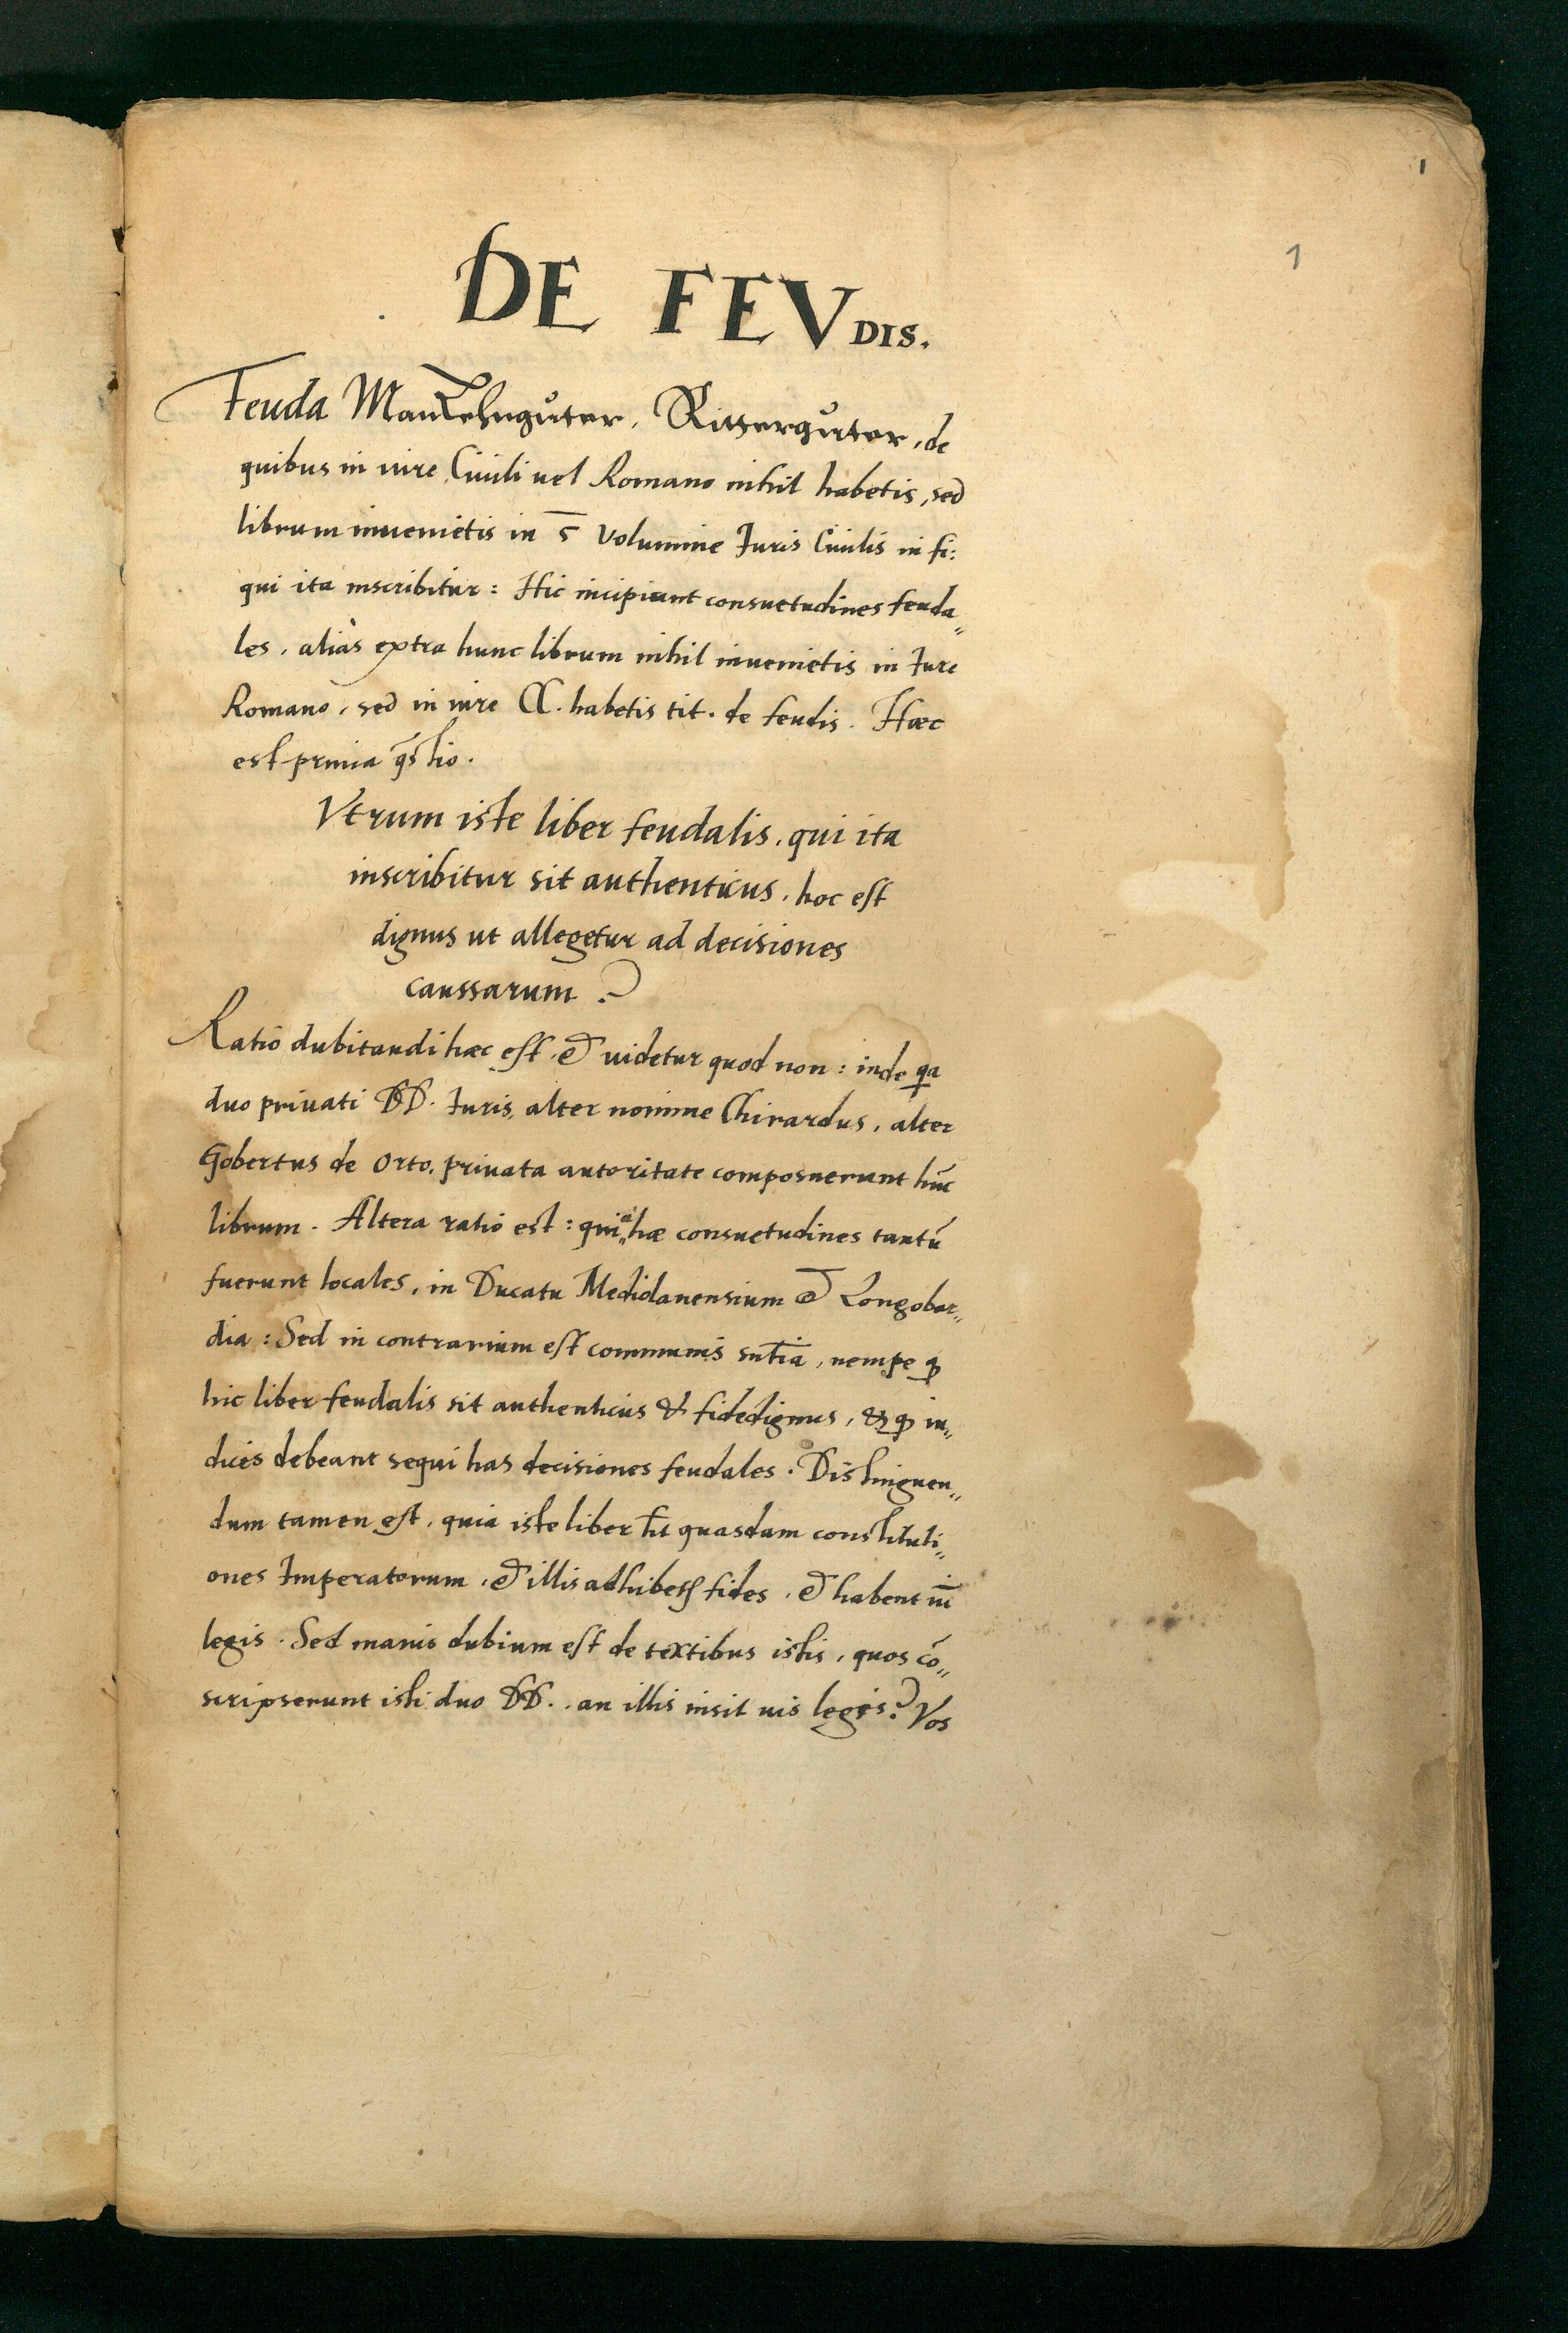 1
1
DE FEVDIS.
Feuda Manlehngůter, Ritterguter, de
quibus in iure Ciuili uel Romano nihil habetis, sed
librum inuenietis in 5 volumine Iuris Ciuilis in fi:
qui ita inscribitur: Hic incipiunt consuetudines feuda„
les, aliàs extra hunc librum nihil inuenietis in Iure
Romano, sed in iure habetis tit. de feudis. Hæc
est prima q̃stio.
Vtrum iste liber feudalis, qui ita
inscribitur sit authenticus, hoc est
dignus ut allegetur ad decisiones
caussarum?
Ratio dubitandi hæc est, et uidetur quod non: inde qa
duo priuati DD. Iuris, alter nomine Chirardus, alter
Gobertus de Orto, priuata autoritate composuerunt hũc
librum. Altera ratio est: quia hæ consuetudines tantũ
fuerunt locales, in Ducatu Mediolanensium et Longobar„
dia: Sed in contrarium est communis sn̄tia, nempe ꝙ
hic liber feudalis sit authenticus & fidedignus, & ꝙ iu„
dices debeant sequi has decisiones feudales. Distinguen„
dum tamen est, quia iste liber h̄t quasdam constituti„
ones Imperatorum, et illis adhibetur fides, et habent uim
legis. Sed maius dubium est de textibus istis, quos cõ„
scripserunt isti duo DD., an illis insit uis legis? Vos